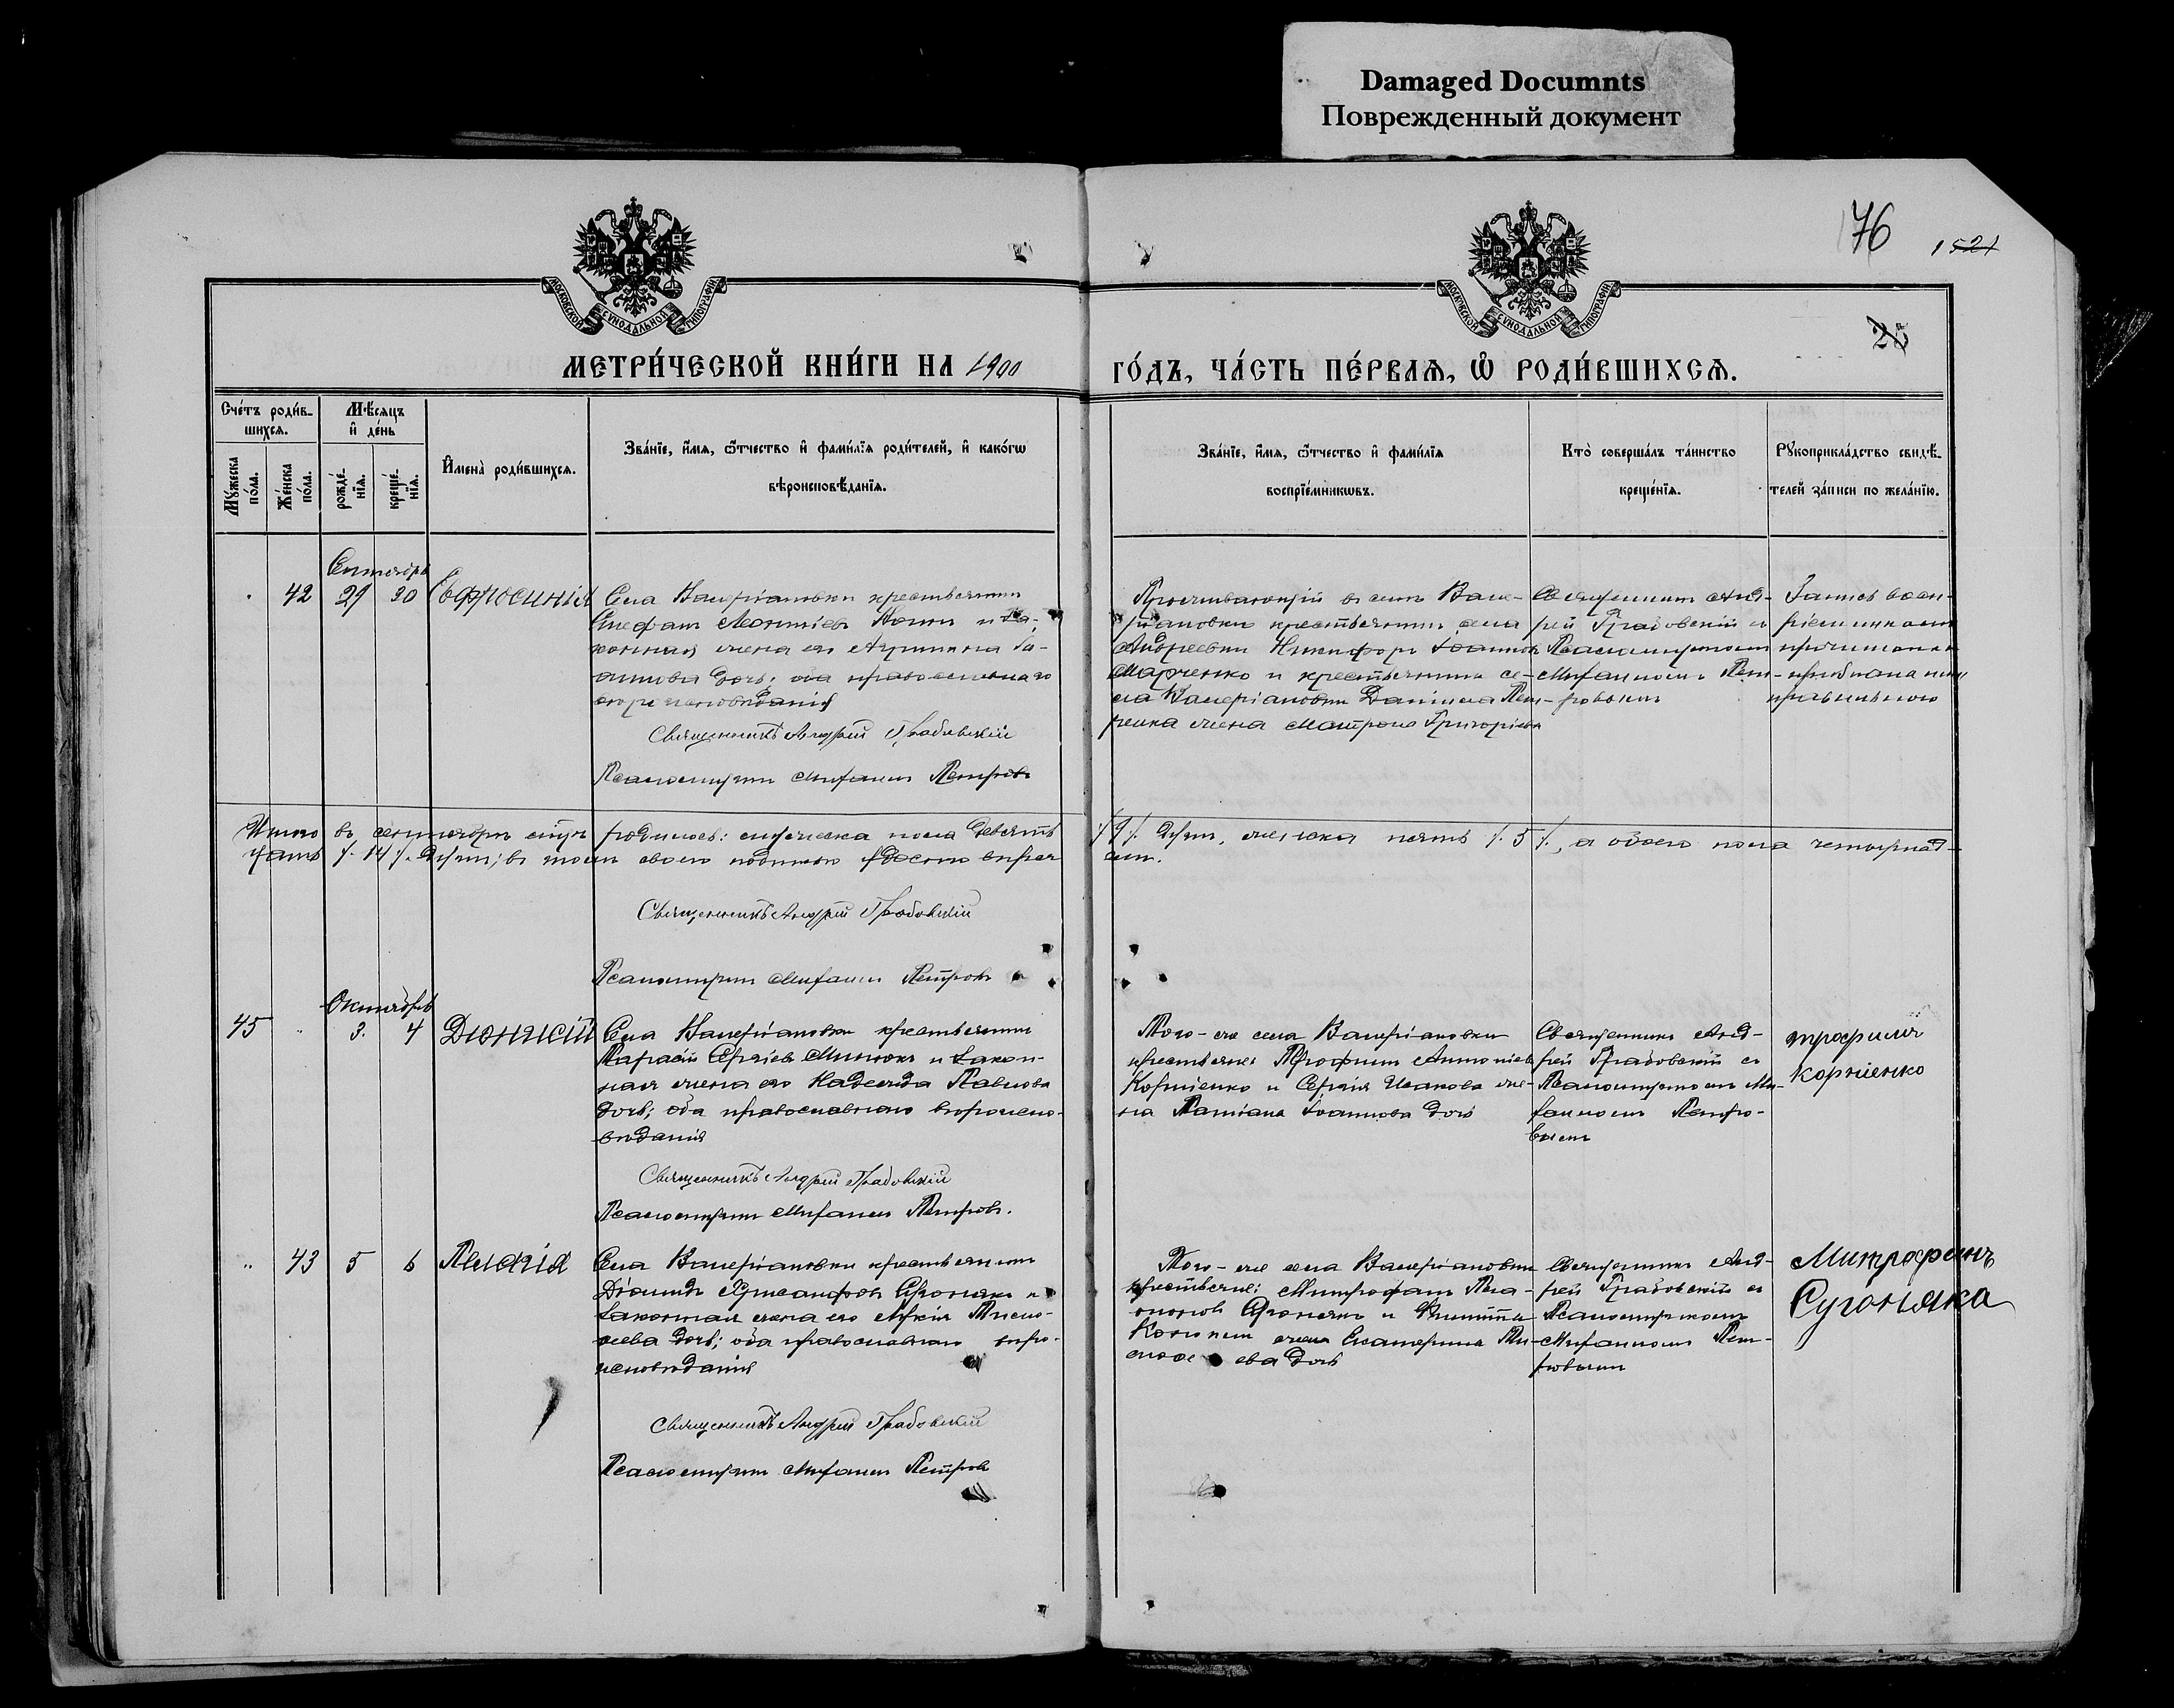 Damaged Documnts
Поврежденный документ
176 1521
25
МОСКОВСКОЙ СѴНОДАЛЬНОЙ ТИПОГРАФІИ
МОСКОВСКОЙ СѴНОДАЛЬНОЙ ТИПОГРАФІИ
МЕТРИ́ЧЕСКОЙ КНИ́ГИ НА 1900 ГО́ДЪ, ЧА́СТЬ ПЕ́РВАѦ, Ѡ҆ РОДИ́ВШИХСѦ.
Сче́тъ роди́в-
шихсѧ.
Мꙋ́жеска
по́ла.
Же́нска
по́ла.
Мѣ́сѧцъ
и҆ де́нь
рожде́-
нїѧ.
креще́-
нїѧ.
И҆мена̀ роди́вшихсѧ.
Зва́нїе, и҆́мѧ, ѻ҆́тчество и҆ фами́лїѧ роди́телей, и҆ како́гѡ
вѣроисповѣ́данїѧ.
Зва́нїе, и҆́мѧ, ѻ҆́тчество и҆ фами́лїѧ
воспрїе́мникѡвъ.
Кто̀ соверша́лъ та́инство
креще́нїѧ.
Рꙋкоприкла́дство свидѣ́-
телей за́писи по жела́нїю.
Сентябрь
42 29 30 Евфросинія
Села Валеріановки крестьянинъ
Стефанъ Леонтіевъ и за-
конная жена его Агриппина Іо-
аннова дочь; оба православнаго
вѣроисповѣданія
Священникъ Андрей Грабовскій
Псаломщикъ Митрофанъ Петровъ
Проживающій въ селѣ Вале-
ріановкѣ крестьянинъ села
Андреевки Никифоръ Іоанновъ
Марченко и крестьянина се-
ла Валеріановки Даніила Пет-
ренка жена Матрона Григорьева
Священникъ Анд-
рей Грабовскій съ
Псаломщикомъ
Митрофаномъ Пет-
ровымъ
Запись воспр-
ріемниками
прочитана и
признана ими
правильною
Итого въ сентябрѣ мѣсяцѣ родилось: мужеска пола девять /9/ дѣтей, женска пять /5/, а обоего пола четырнад-
цать /14/ дѣтей; въ чемъ своею подписью
Священникъ Андрей Грабовскій
Псаломщикъ Митрофанъ Петровъ
Октябрь
45 3. 4 Діонисій
Села Валеріановки крестьянинъ
Тарасій Сергіевъ и закон-
ная жена его Надежда Павлова
дочь; оба православнаго вѣроиспо-
вѣданія
Священникъ Андрей Грабовскій
Псаломщикъ Митрофанъ Петровъ.
Того-же села Валеріановки
крестьяне: Трофимъ Антоніевъ
Корніенко и Сергія Исакова же-
на Татіана Іоаннова дочь
Священникъ Анд-
рей Грабовскій съ
Псаломщикомъ Ми-
фаномъ Петро-
вымъ
трофимъ
корніенко
43 5 6 Пелагія
Села Валеріановки крестьянинъ
Діомидъ Хрисанфовъ и
законная жена его Тимо-
феева дочь; оба православнаго вѣро-
исповѣданія
Священникъ Андрей Грабовскій
Псаломщикъ Митрофанъ Петровъ
Того-же села Валеріановки
крестьяне: Митрофанъ
и Филиппа
жена Екатерина Ти-
мофеева дочь
Священникъ Анд-
рей Грабовскій съ
Псаломщикомъ
Митрофаномъ Пет-
ровымъ
Митрофанъ
Сугоняка